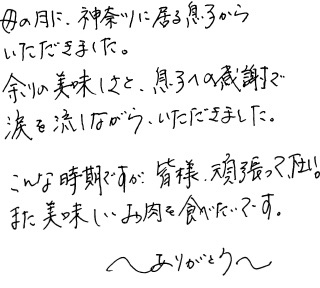 母の日に、神奈川に居る息子から
いただきました。
余りの美味しさと、息子への感謝で
涙を流しながら、いただきました。
こんな時期ですが、皆様、頑張って下さい!!
また美味しいお肉を食べたいです。
〜ありがとう〜